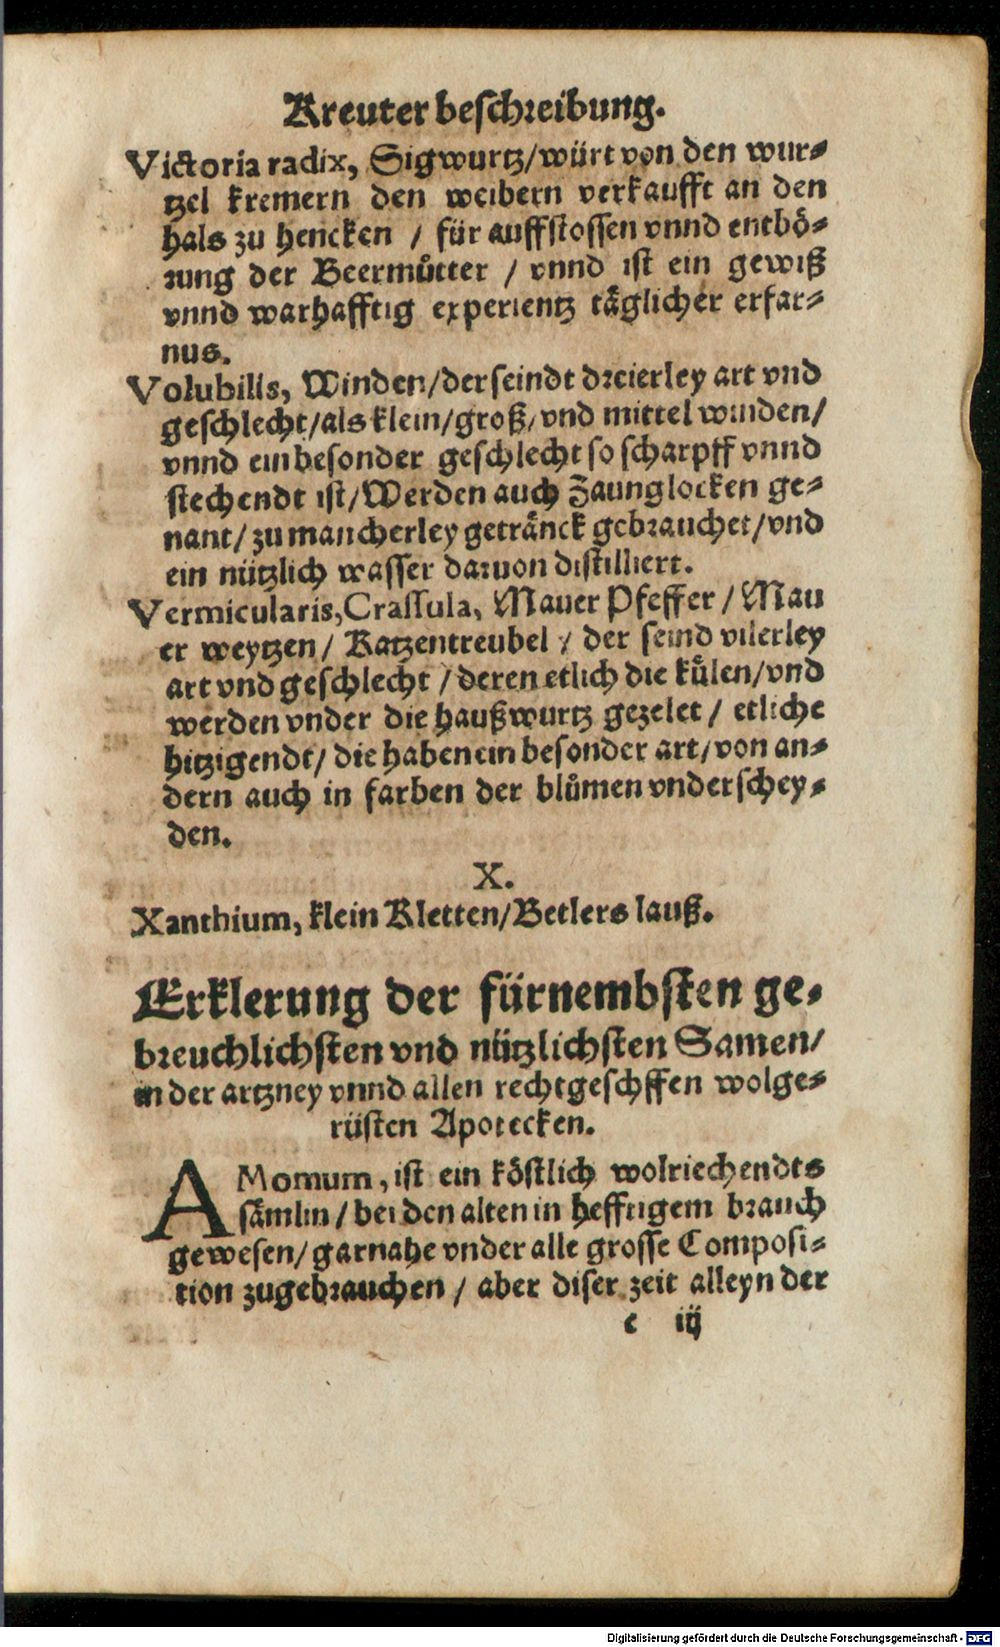 Kreuter beschreibung.
Victoria radix, Sigwurtz/würt von den wur⸗
tzel kremern den weibern verkaufft an den
hals zu hencken / für auffstossen vnnd entbö⸗
rung der Beermůtter / vnnd ist ein gewiß
vnnd warhafftig experientz täglicher erfar⸗
nus.
Volubilis, Winden/der seindt dreierley art vnd
geschlecht/als klein/groß/vnd mittel winden/
vnnd ein besonder geschlecht so scharpff vnnd
stechendt ist/Werden auch Zaunglocken ge⸗
nant/zu mancherley getränck gebrauchet/vnd
ein nützlich wasser daruon distilliert.
Vermicularis, Crassula, Maner Pfeffer / Mau
er weytzen / Katzentreubel / der seind vilerley
art vnd geschlecht / deren etlich die külen/vnd
werden vnder die haußwurtz gezelet / etliche
hitzigendt/die haben ein besonder art/von an⸗
dern auch in farben der blůmen vnderschey⸗
den.
X.
Xanthium, klein Kletten/Betlers lauß.
Erklerung der fürnembsten ge⸗
breuchlichsten vnd nützlichsten Samen/
in der artzney vnnd allen rechtgeschffen wolge⸗
rüsten Apotecken.
AMomum, ist ein köstlich wolriechendts
sämlin / bei den alten in hefftigem brauch
gewesen/garnahe vnder alle grosse Composi⸗
tion zugebrauchen / aber diser zeit alleyn der
c iij
Digitalisierung gefördert durch die Deutsche Forschungsgemeinschaft - DFG